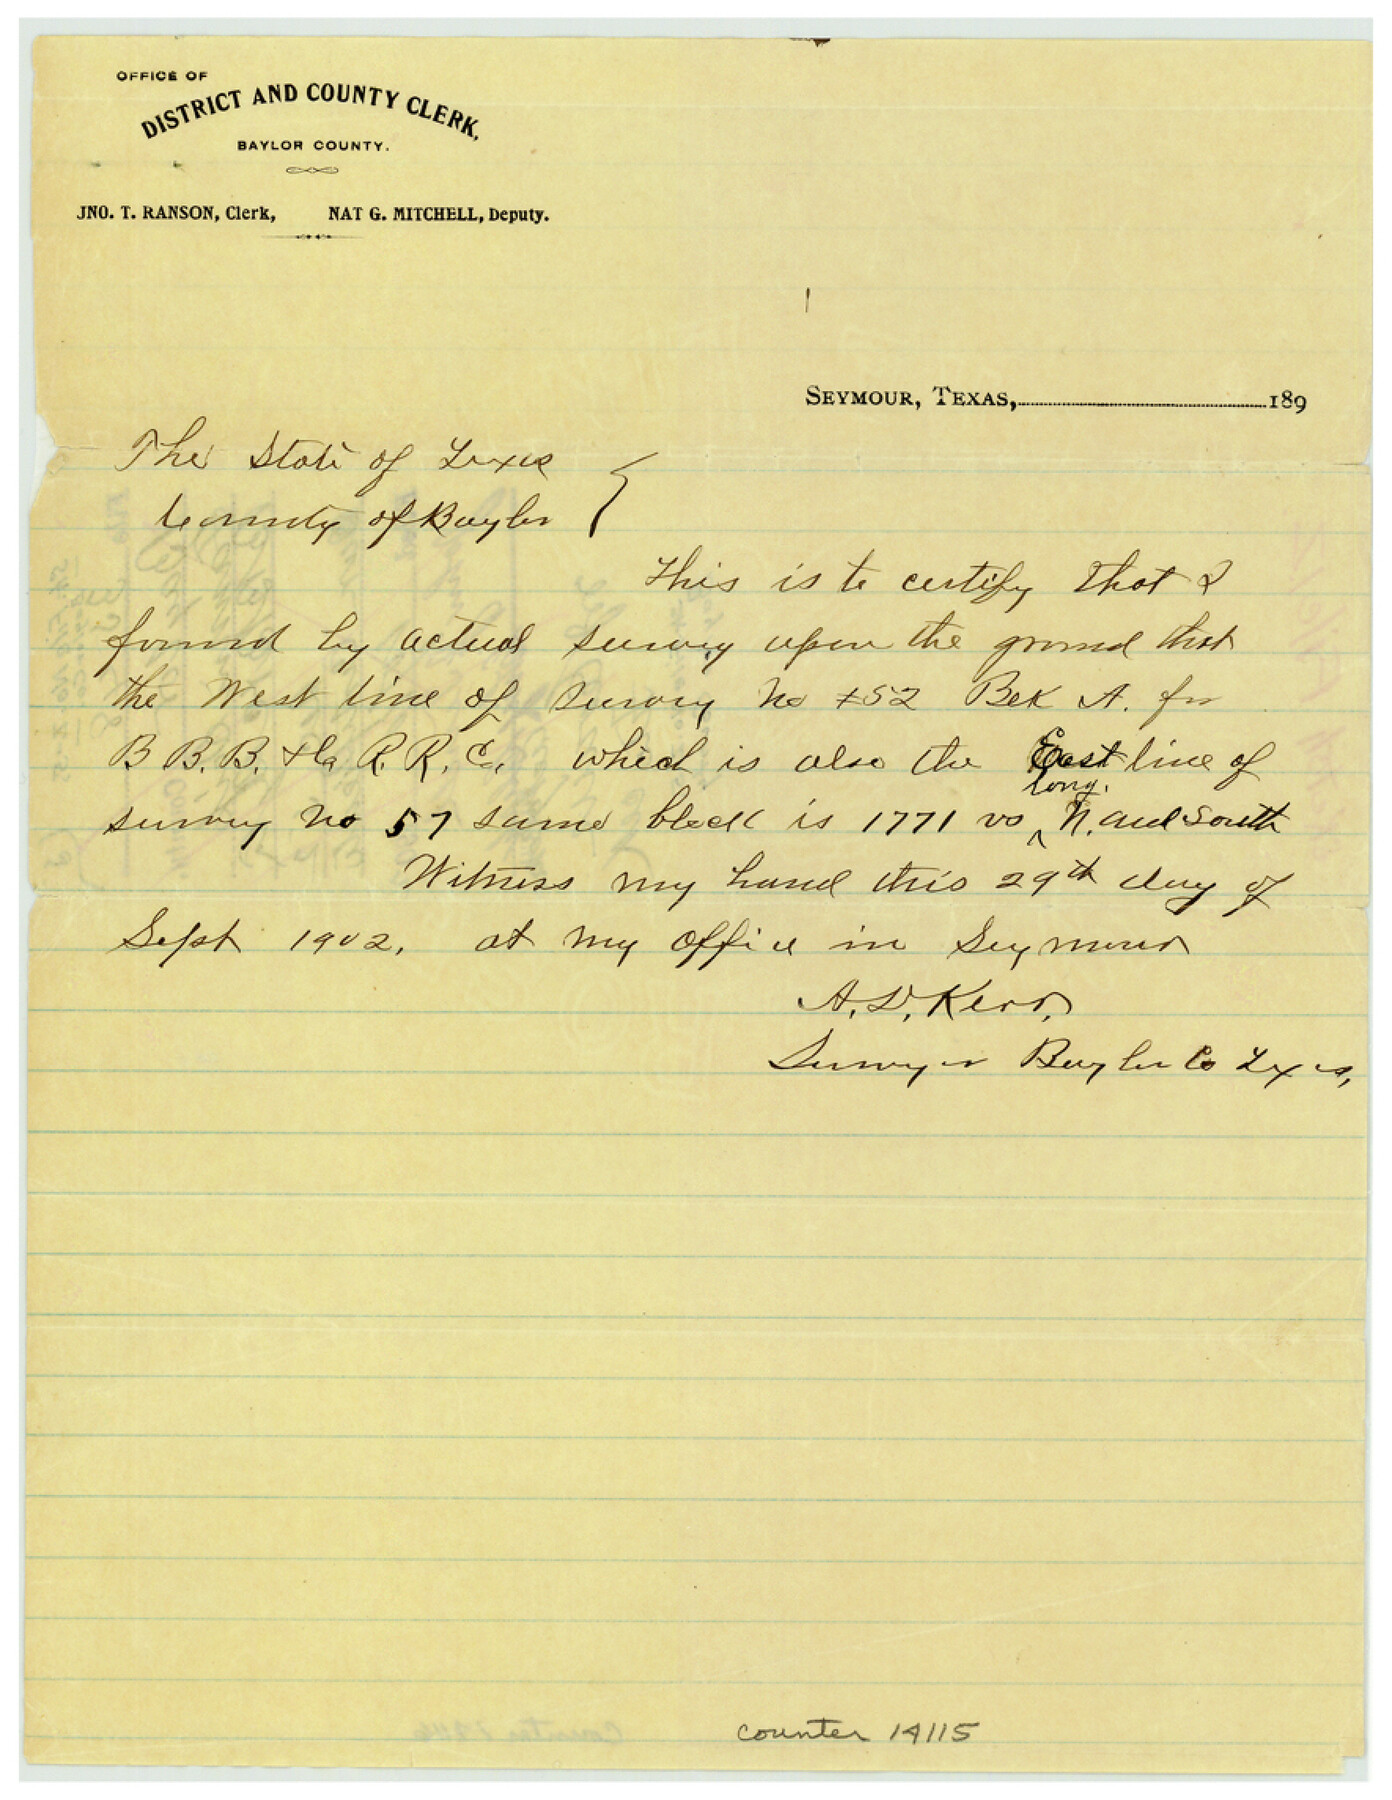 OFFICE OF
DISTRICT AND COUNTY CLERK,
BAYLOR COUNTY.
JNO. T. RANSON, Clerk, NAT G. MITCHELL, Deputy.
SEYMOUR, TEXAS, 189
The State of Texas
County of Baylor
This is to certify that I
found by actual survey upon the ground that
the West line of survey No 52 Blk A. for
B B. B. & Co R. R. Co. which is also the East line of
long.
survey No 57 same block is 1771 vs ^ N. and South
Witness my hand this 29th day of
Sept 1902, at my office in Seymour
A. D. Kerr,
Surveyor Baylor Co Texas,
counter 14115